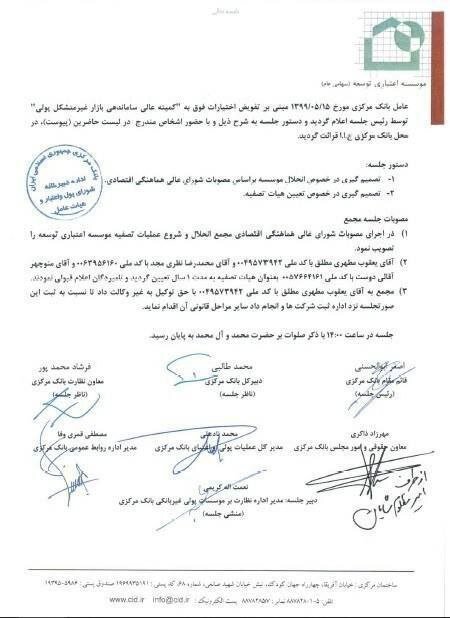 باسمه تعالی
موسسه اعتباری توسعه (سهامی عام)
عامل بانک مرکزی مورخ ۱۳۹۹/۰۵/۱۵ مبنی بر تفویض اختیارات فوق به "کمیته عالی ساماندهی بازار غیرمتشکل پولی"
توسط رئیس جلسه اعلام گردید و دستور جلسه به شرح ذیل و با حضور اشخاص مندرج در لیست حاضرین (پیوست)، در
محل بانک مرکزی ج.ا.ا قرائت گردید.
دستور جلسه:
۱- تصمیم گیری در خصوص انحلال موسسه براساس مصوبات شورای عالی هماهنگی اقتصادی.
۲- تصمیم گیری در خصوص تعیین هیات تصفیه.
بانک مرکزی جمهوری اسلامی ایران
اداره دبیرخانه
شورای پول و اعتبار و
هیات عامل
مصوبات جلسه مجمع
۱) در اجرای مصوبات شورای عالی هماهنگی اقتصادی مجمع انحلال و شروع عملیات تصفیه موسسه اعتباری توسعه را
تصویب نمود.
۲) آقای یعقوب مطهری مطلق با کد ملی ۰۰۴۹۵۷۳۹۴۲ و آقای محمدرضا نظری مجد با کد ملی ۰۰۶۳۹۵۶۱۶۰ و آقای منوچهر
آقائی دوست با کد ملی ۰۰۵۷۶۶۴۱۶۱ بعنوان هیات تصفیه به مدت ۱ سال تعیین گردید و نامبردگان اعلام قبولی نمودند.
۳) مجمع به آقای یعقوب مطهری مطلق با کد ملی ۰۰۴۹۵۷۳۹۴۲ با حق توکیل به غیر وکالت داد تا نسبت به ثبت این
صورتجلسه نزد اداره ثبت شرکت ها و انجام سایر مراحل قانونی آن اقدام نماید.
جلسه در ساعت ۱۴:۰۰ با ذکر صلوات بر حضرت محمد و آل محمد به پایان رسید.
اصغر ابوالحسنی
قائم مقام بانک مرکزی
(رئیس جلسه)
محمد طالبی
دبیرکل بانک مرکزی
(ناظر جلسه)
فرشاد محمد پور
معاون نظارت بانک مرکزی
(ناظر جلسه)
مهرزاد ذاکری
معاون حقوقی و امور مجلس بانک مرکزی
محمد نادعلی
مدیر کل عملیات پولی و اعتباری بانک مرکزی
مصطفی قمری وفا
مدیر اداره روابط عمومی بانک مرکزی
نعمت اله کریمی
دبیر جلسه: مدیر اداره نظارت بر موسسات پولی غیربانکی بانک مرکزی
(منشی جلسه)
از طرف
ساختمان مرکزی: خیابان آفریقا، چهارراه جهان کودک، نبش خیابان شهید صانعی، شماره ۶۸، کد پستی: ۱۹۶۹۹۳۵۱۹۱ صندوق پستی: ۵۹۸۴-۱۹۳۹۵
تلفن: ۵-۸۸۷۸۲۸۰۱ نمابر: ۸۸۷۸۲۸۵۷ پست الکترونیک: info@cid.ir www.cid.ir